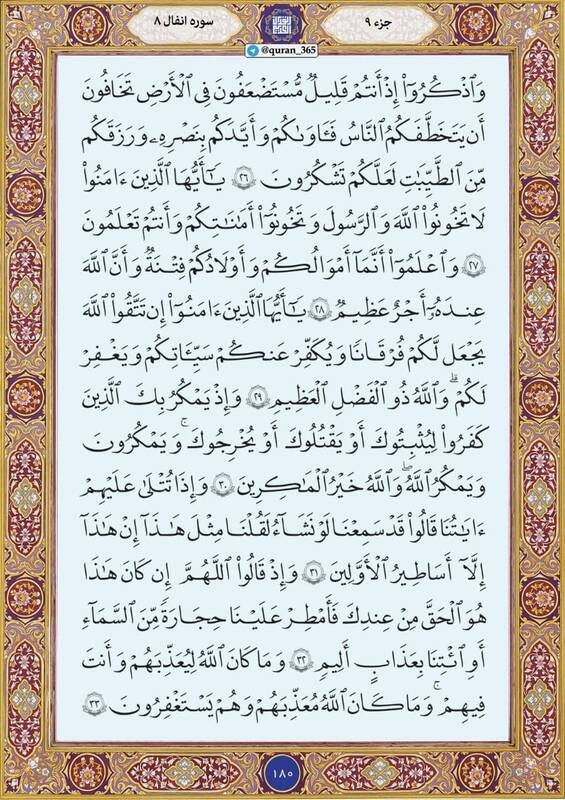 جزء ۹
سوره انفال ۸
@quran_365
وَٱذْكُرُوٓا۟ إِذْ أَنتُمْ قَلِيلٌ مُّسْتَضْعَفُونَ فِى ٱلْأَرْضِ تَخَافُونَ
أَن يَتَخَطَّفَكُمُ ٱلنَّاسُ فَـَٔاوَىٰكُمْ وَأَيَّدَكُم بِنَصْرِهِۦ وَرَزَقَكُم
مِّنَ ٱلطَّيِّبَـٰتِ لَعَلَّكُمْ تَشْكُرُونَ ۲۶ يَـٰٓأَيُّهَا ٱلَّذِينَ ءَامَنُوا۟
لَا تَخُونُوا۟ ٱللَّهَ وَٱلرَّسُولَ وَتَخُونُوٓا۟ أَمَـٰنَـٰتِكُمْ وَأَنتُمْ تَعْلَمُونَ
۲۷ وَٱعْلَمُوٓا۟ أَنَّمَآ أَمْوَٰلُكُمْ وَأَوْلَـٰدُكُمْ فِتْنَةٌ وَأَنَّ ٱللَّهَ
عِندَهُۥٓ أَجْرٌ عَظِيمٌ ۲۸ يَـٰٓأَيُّهَا ٱلَّذِينَ ءَامَنُوٓا۟ إِن تَتَّقُوا۟ ٱللَّهَ
يَجْعَل لَّكُمْ فُرْقَانًا وَيُكَفِّرْ عَنكُمْ سَيِّـَٔاتِكُمْ وَيَغْفِرْ
لَكُمْ ۗ وَٱللَّهُ ذُو ٱلْفَضْلِ ٱلْعَظِيمِ ۲۹ وَإِذْ يَمْكُرُ بِكَ ٱلَّذِينَ
كَفَرُوا۟ لِيُثْبِتُوكَ أَوْ يَقْتُلُوكَ أَوْ يُخْرِجُوكَ ۚ وَيَمْكُرُونَ
وَيَمْكُرُ ٱللَّهُ ۖ وَٱللَّهُ خَيْرُ ٱلْمَـٰكِرِينَ ۳۰ وَإِذَا تُتْلَىٰ عَلَيْهِمْ
ءَايَـٰتُنَا قَالُوا۟ قَدْ سَمِعْنَا لَوْ نَشَآءُ لَقُلْنَا مِثْلَ هَـٰذَآ إِنْ هَـٰذَآ
إِلَّآ أَسَـٰطِيرُ ٱلْأَوَّلِينَ ۳۱ وَإِذْ قَالُوا۟ ٱللَّهُمَّ إِن كَانَ هَـٰذَا
هُوَ ٱلْحَقَّ مِنْ عِندِكَ فَأَمْطِرْ عَلَيْنَا حِجَارَةً مِّنَ ٱلسَّمَآءِ
أَوِ ٱئْتِنَا بِعَذَابٍ أَلِيمٍ ۳۲ وَمَا كَانَ ٱللَّهُ لِيُعَذِّبَهُمْ وَأَنتَ
فِيهِمْ ۚ وَمَا كَانَ ٱللَّهُ مُعَذِّبَهُمْ وَهُمْ يَسْتَغْفِرُونَ ۳۳
۱۸۰